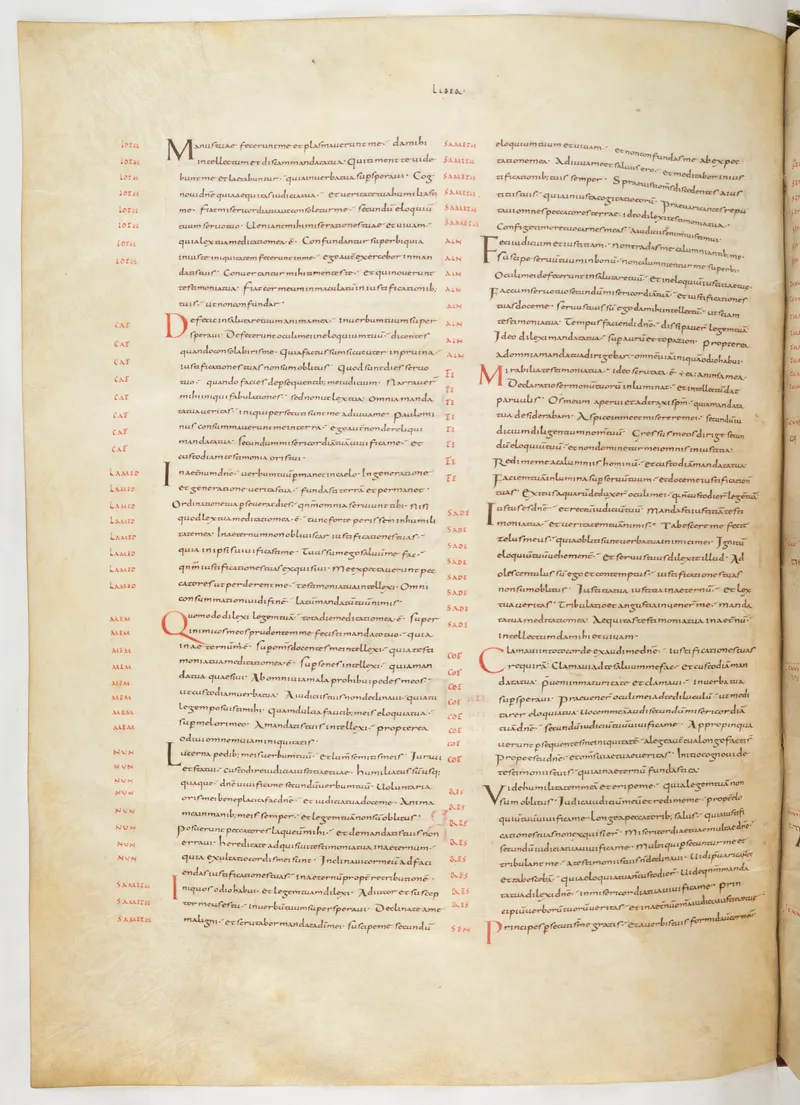 LIBER
IOTH Manus tuae fecerunt me et plasmauerunt me · da mihi
IOTH intellectum et discam mandata tua · Qui timent te uide
IOTH bunt me et laetabuntur · quia in uerba tua supsperaui · Cog
IOTH noui dne quia aequitas iudicia tua · et ueritate tua humiliasti
IOTH me · Fiat misericordia tua ut consoletur me · secundū eloquiū
tuum seruo tuo · Ueniant mihi miserationes tuae et uiuam ·
IOTH quia lex tua meditatio mea ē · Confundantur superbi quia
IOTH iniuste iniquitatem fecerunt in me · ego autē exercebor in man
datis tuis · Conuertantur mihi timentes te · et qui nouerunt
testimonia tua · Fiat cor meum inmaculatū in iustificationib;
tuis · ut non confundar ·
CAF Defecit in salutare tuum anima mea · in uerbum tuum super
speraui · Defecerunt oculi mei in eloquium tuū · dicentes
CAF quando consolaberis me · Quia factus sum sicut uter in pruina ·
CAF iustificationes tuas non sum oblitus · Quod sunt dies seruo
CAF tuo · quando facies de psequentib; me iudicium · Narrauer
CAF mihi iniqui fabulationes · sed non ut lex tua · Omnia manda
CAF ta tua ueritas · iniqui persecuti sunt me adiuua me · Paulomi
nus consummauerunt me in terra · ego autē non dereliqui
CAF mandata tua · secundum misericordiā tuā uiuifica me · et
CAF custodiam testimonia oris tui ·
LAMED In aeternū dne · uerbum tuū pmanet in caelo · In generatione
et generatione ueritas tua · fundasti terrā et permanet ·
LAMED Ordinatione tua pseuerat dies · qnm omnia seruiunt tibi · Nisi
LAMED quod lex tua meditatio mea ē · tunc forte perissem in humili
LAMED tate mea · In aeternum non obliuiscar iustificationes tuas ·
LAMED quia in ipsis uiuificasti me · Tuus sum ego saluū me fac ·
LAMED qnm iustificationes tuas exquisiui · Me expectauerunt pec
LAMED catores ut perderent me · testimonia tua intellexi · Omni
consummationi uidi finē · latū mandatū tuū nimis ·
MEM Quomodo dilexi legem tuā · tota die meditatio mea ē · Super
MEM inimicos meos prudentem me fecisti mandato tuo · quia
in aeternū m̄ ē · Sup om̄s docentes me intellexi · quia testi
MEM monia tua meditatio mea ē · Sup senes intellexi · quia man
MEM data tua quaesiui · Ab omni uia mala prohibui pedes meos ·
MEM ut custodiam uerba tua · A iudiciis tuis non declinaui · quia tu
MEM legem posuisti mihi · Quam dulcia faucib; meis eloquia tua ·
MEM sup mel ori meo · A mandatis tuis intellexi · propterea
odiui omnem uiam iniquitatis ·
NUN Lucerna pedib; meis uerbum tuū · et lum̄ semitis meis · Iuraui
NUN et statui · custodire iudicia iustitiae tuae · humiliatus sū usq;
NUN quaque · dne uiuifica me secundū uerbum tuū · Uoluntaria
NUN oris mei beneplacita fac dne · et iudicia tua doce me · Anima
NUN mea in manib; meis semper · et legem tuā non sū oblitus ·
NUN posuerunt peccatores laqueū mihi · et de mandatis tuis non
NUN erraui · hereditate adquisiui testimonia tua in aeternum ·
NUN quia exultatio cordis mei sunt · Inclinaui cor meū ad faci
endas iustificationes tuas · in aeternū propt retributionē ·
SAMECH Iniquos odio habui · et legem tuam dilexi · Adiutor et suscep
SAMECH tor meus es tu · in uerbū tuum supersperaui · Declinate a me
SAMECH maligni · et scrutabor mandata dī mei · Suscipe me secundū
SAMECH eloquium tuum et uiuam · et non confundas me ab expec
SAMECH tatione mea · Adiuua me et saluus ero · et meditabor in ius
SAMECH tificationib; tuis semper · Spreuisti om̄s discedentes a ius
SAMECH titiis tuis · quia iniusta cogitatio eorū · Praeuaricantes repu
taui omnes peccatores terrae · ideo dilexi testimonia tua ·
SAMECH Confige timore tuo carnes meas · A iudiciis enim tuis timui ·
AIN Feci iudicium et iustitiam · non tradas me calumniantib; me ·
Suscipe seruū tuum in bonū · non calumnientur me superbi ·
AIN Oculi mei defecerunt in salutare tuū · et in eloquiū iustitiae tuae ·
AIN Fac cum seruo tuo secundū misericordiā tuā · et iustificationes
AIN tuas doce me · Seruus tuus sū ego da mihi intellectū · ut sciam
AIN testimonia tua · Tempus faciendi dne · dissipauer legem tuā
AIN Ideo dilexi mandata tua · sup aurū et topazion · propterea
AIN ad omnia mandata tua dirigebar · omnē uiā iniquā odio habui ·
FE Mirabilia testimonia tua · ideo scrutata ē ea anima mea ·
FE Declaratio sermonū tuorū inluminat · et intellectū dat
paruulis · Os meum aperui et adtraxi spm̄ · quia mandata
FE tua desiderabam · Aspice in me et miserere mei · secundū iu
FE dicium diligentiū nomen tuū · Gressus meos dirige secun
FE dū eloquiū tuū · et non dominetur mei omnis iniustitia ·
FE Redime me a calumniis hominū · et custodiā mandata tua ·
FE Faciem tuā inlumina sup seruū tuum · et doce me iustification
tuas · Exitus aquarū deduxer oculi mei · qn̄ custodier legē tuā
SADE Iustus es dne · et rectū iudiciū tuū · Mandasti iustitiā testi
SADE monia tua · et ueritatem tuā nimis · Tabescere me fecit
SADE zelus meus · quia obliti sunt uerba tua inimici mei · Ignitū
SADE eloquiū tuū uehementē · et seruus tuus dilexit illud · Ad
SADE olescentulus sū ego et contemptus · iustificationes tuas
SADE non sum oblitus · Iustitia tua iustitia in aeternū · et lex
SADE tua ueritas · Tribulatio et angustia inuenerī me · manda
SADE ta tua meditatio mea · Aequitas testimonia tua in aetnū ·
intellectum da mihi et uiuam ·
COF Clamaui in toto corde exaudi me dne · iustificationes tuas
COF requirā · Clamaui ad te saluum me fac · et custodiā man
COF data tua · Pueni in maturitate et clamaui · in uerba tua
COF sup speraui · Praeuenerī oculi mei ad te diluculū · ut medi
COF tarer eloquia tua · Uocem meā audi secundū misericordiā
tuā dne · secundū iudiciū tuū uiuifica me · Appropinqua
COF uerunt psequentes me iniquitatē · a lege autē tua longe facti s̄
COF Prope es tu dne · et om̄s uiae tuae ueritas · Initio cognoui de
testimoniis tuis · quia in aeternū fundasti ea ·
RES Vide humilitatem meā et eripe me · quia legem tuā non
sum oblitus · Iudica iudiciū meū et redime me · propt elo
RES quiū tuū uiuifica me · Longe a peccatorib; salus · quia iustifi
RES cationes tuas non exquisier · Misericordiae tuae multae dne ·
RES secundū iudicia tua uiuifica me · Multi qui psecuntur me et
RES tribulant me · a testimoniis tuis n̄ declinaui · Uidi pūaricantes
RES et tabescebā · quia eloquia tua n̄ custodier · Uide qnm manda
RES ta tua dilexi dne · in misericordia tua uiuifica me · Prin
cipiū uerborū tuorū ueritas · et in aetnū om̄a iudicia iustitiae tuae ·
SEN Principes psecuti s̄ me gratis · et a uerbis tuis formidauit cor meū ·